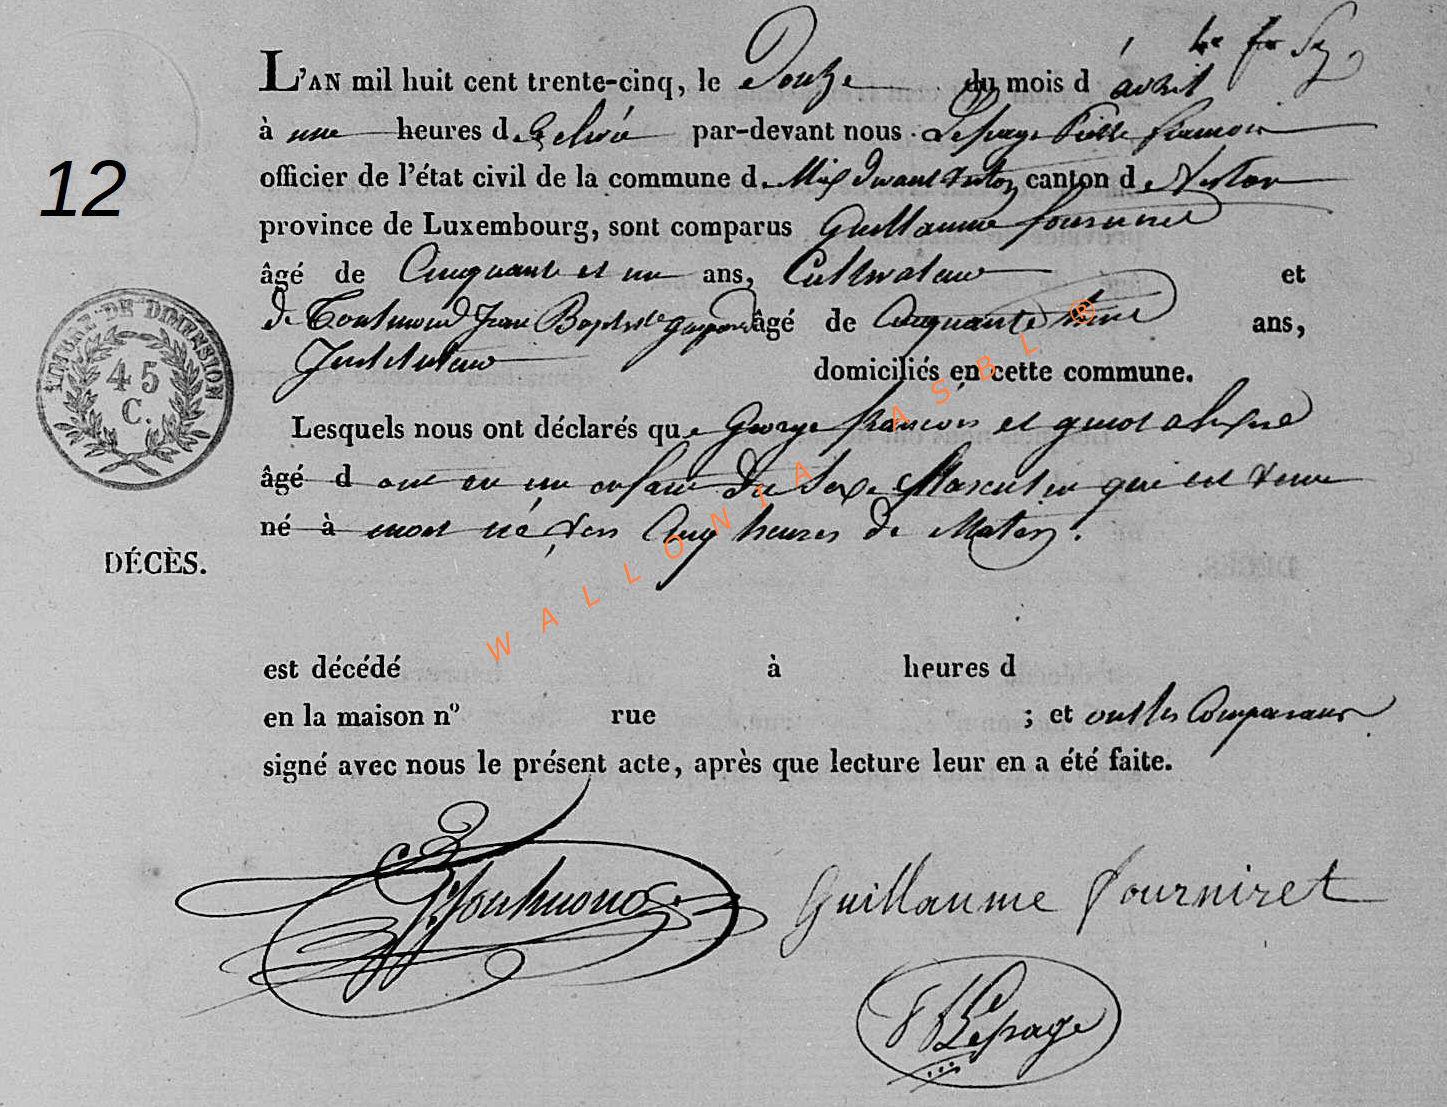 12
L'AN mil huit cent trente-cinq, le Douze du mois d avril
à une heures de relevée par-devant nous Lepage Pierre françois
officier de l'état civil de la commune de Mix devant virton canton de Virton
province de Luxembourg, sont comparus Guillaume fourniret
âgé de Cinquante et un ans, Cultivateur et
de Jean Baptiste âgé de Cinquante ans,
Instituteur domiciliés en cette commune.
Lesquels nous ont déclarés que George francois et
âgé d ont eu un enfant du Sexe Masculin qui est venu
né à mort né vers Cinq heures de Matin.
TIMBRE DE DIMENSION
45
C.
DÉCÈS.
est décédé à heures d
en la maison nº rue ; et ont les Comparans
signé avec nous le présent acte, après que lecture leur en a été faite.
Guillaume fourniret
Lepage
WALLONIA ASBL ®